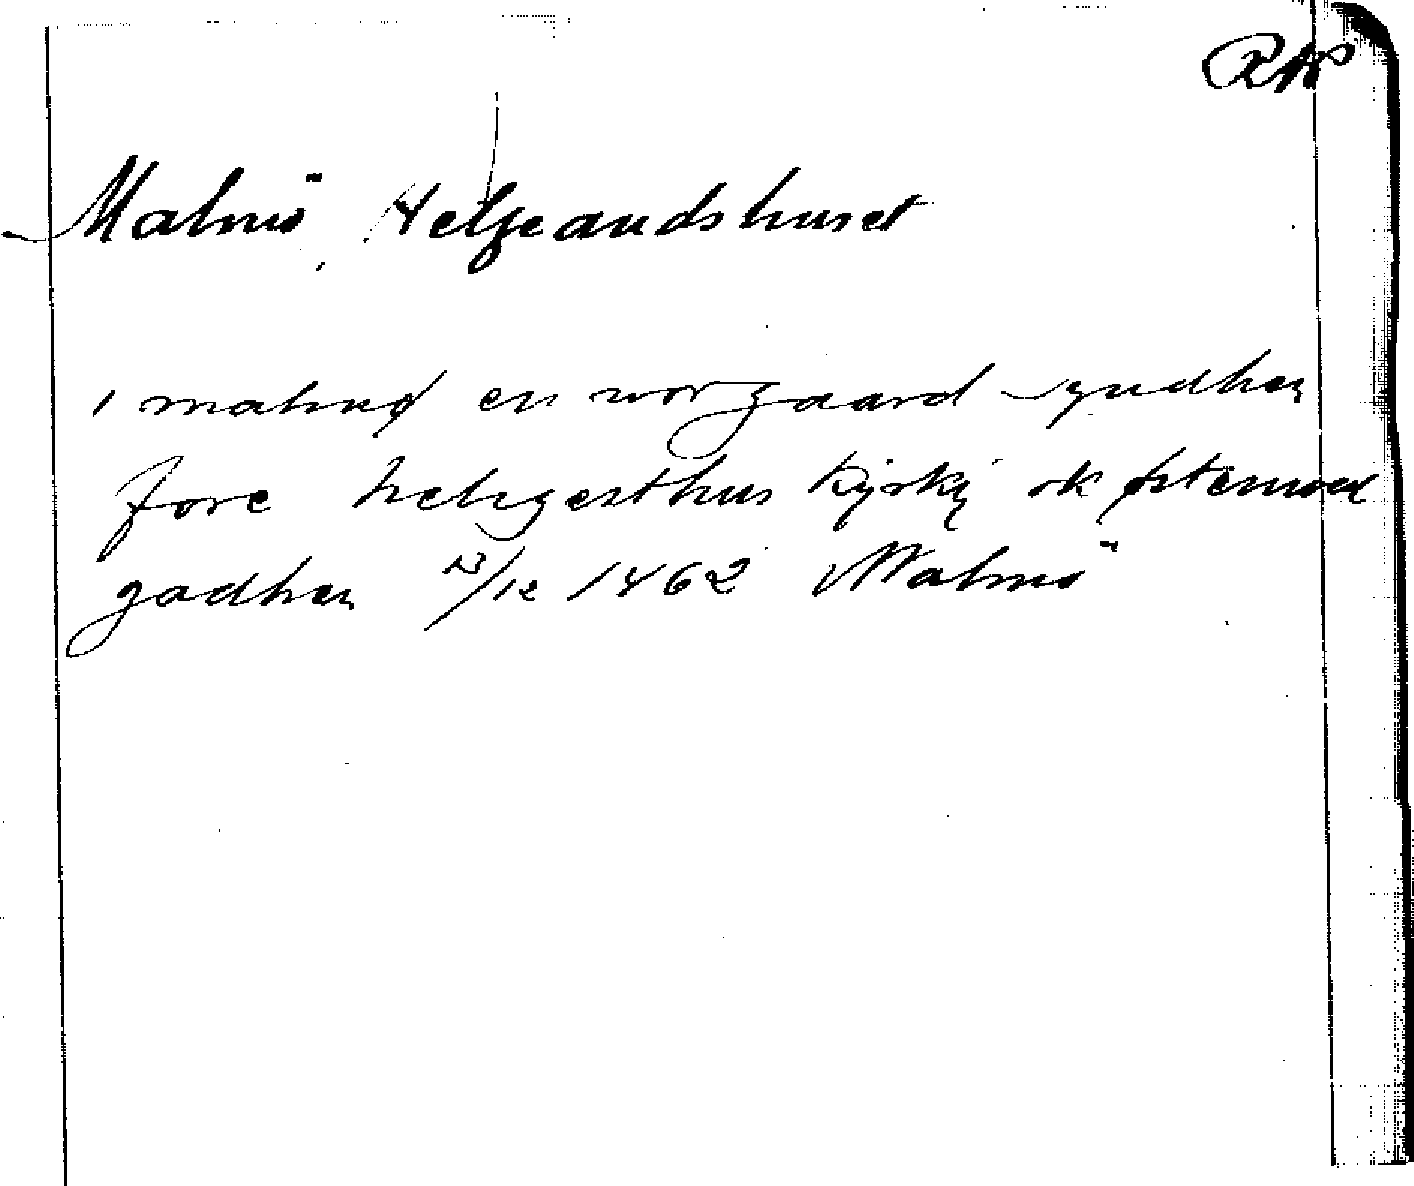 RAP
Malmö Helgeandshuset
i malmø en wor gaard syndhen
fore helgesthus kyrky ok østenwed
gadhen 13/12 1462 Malmö